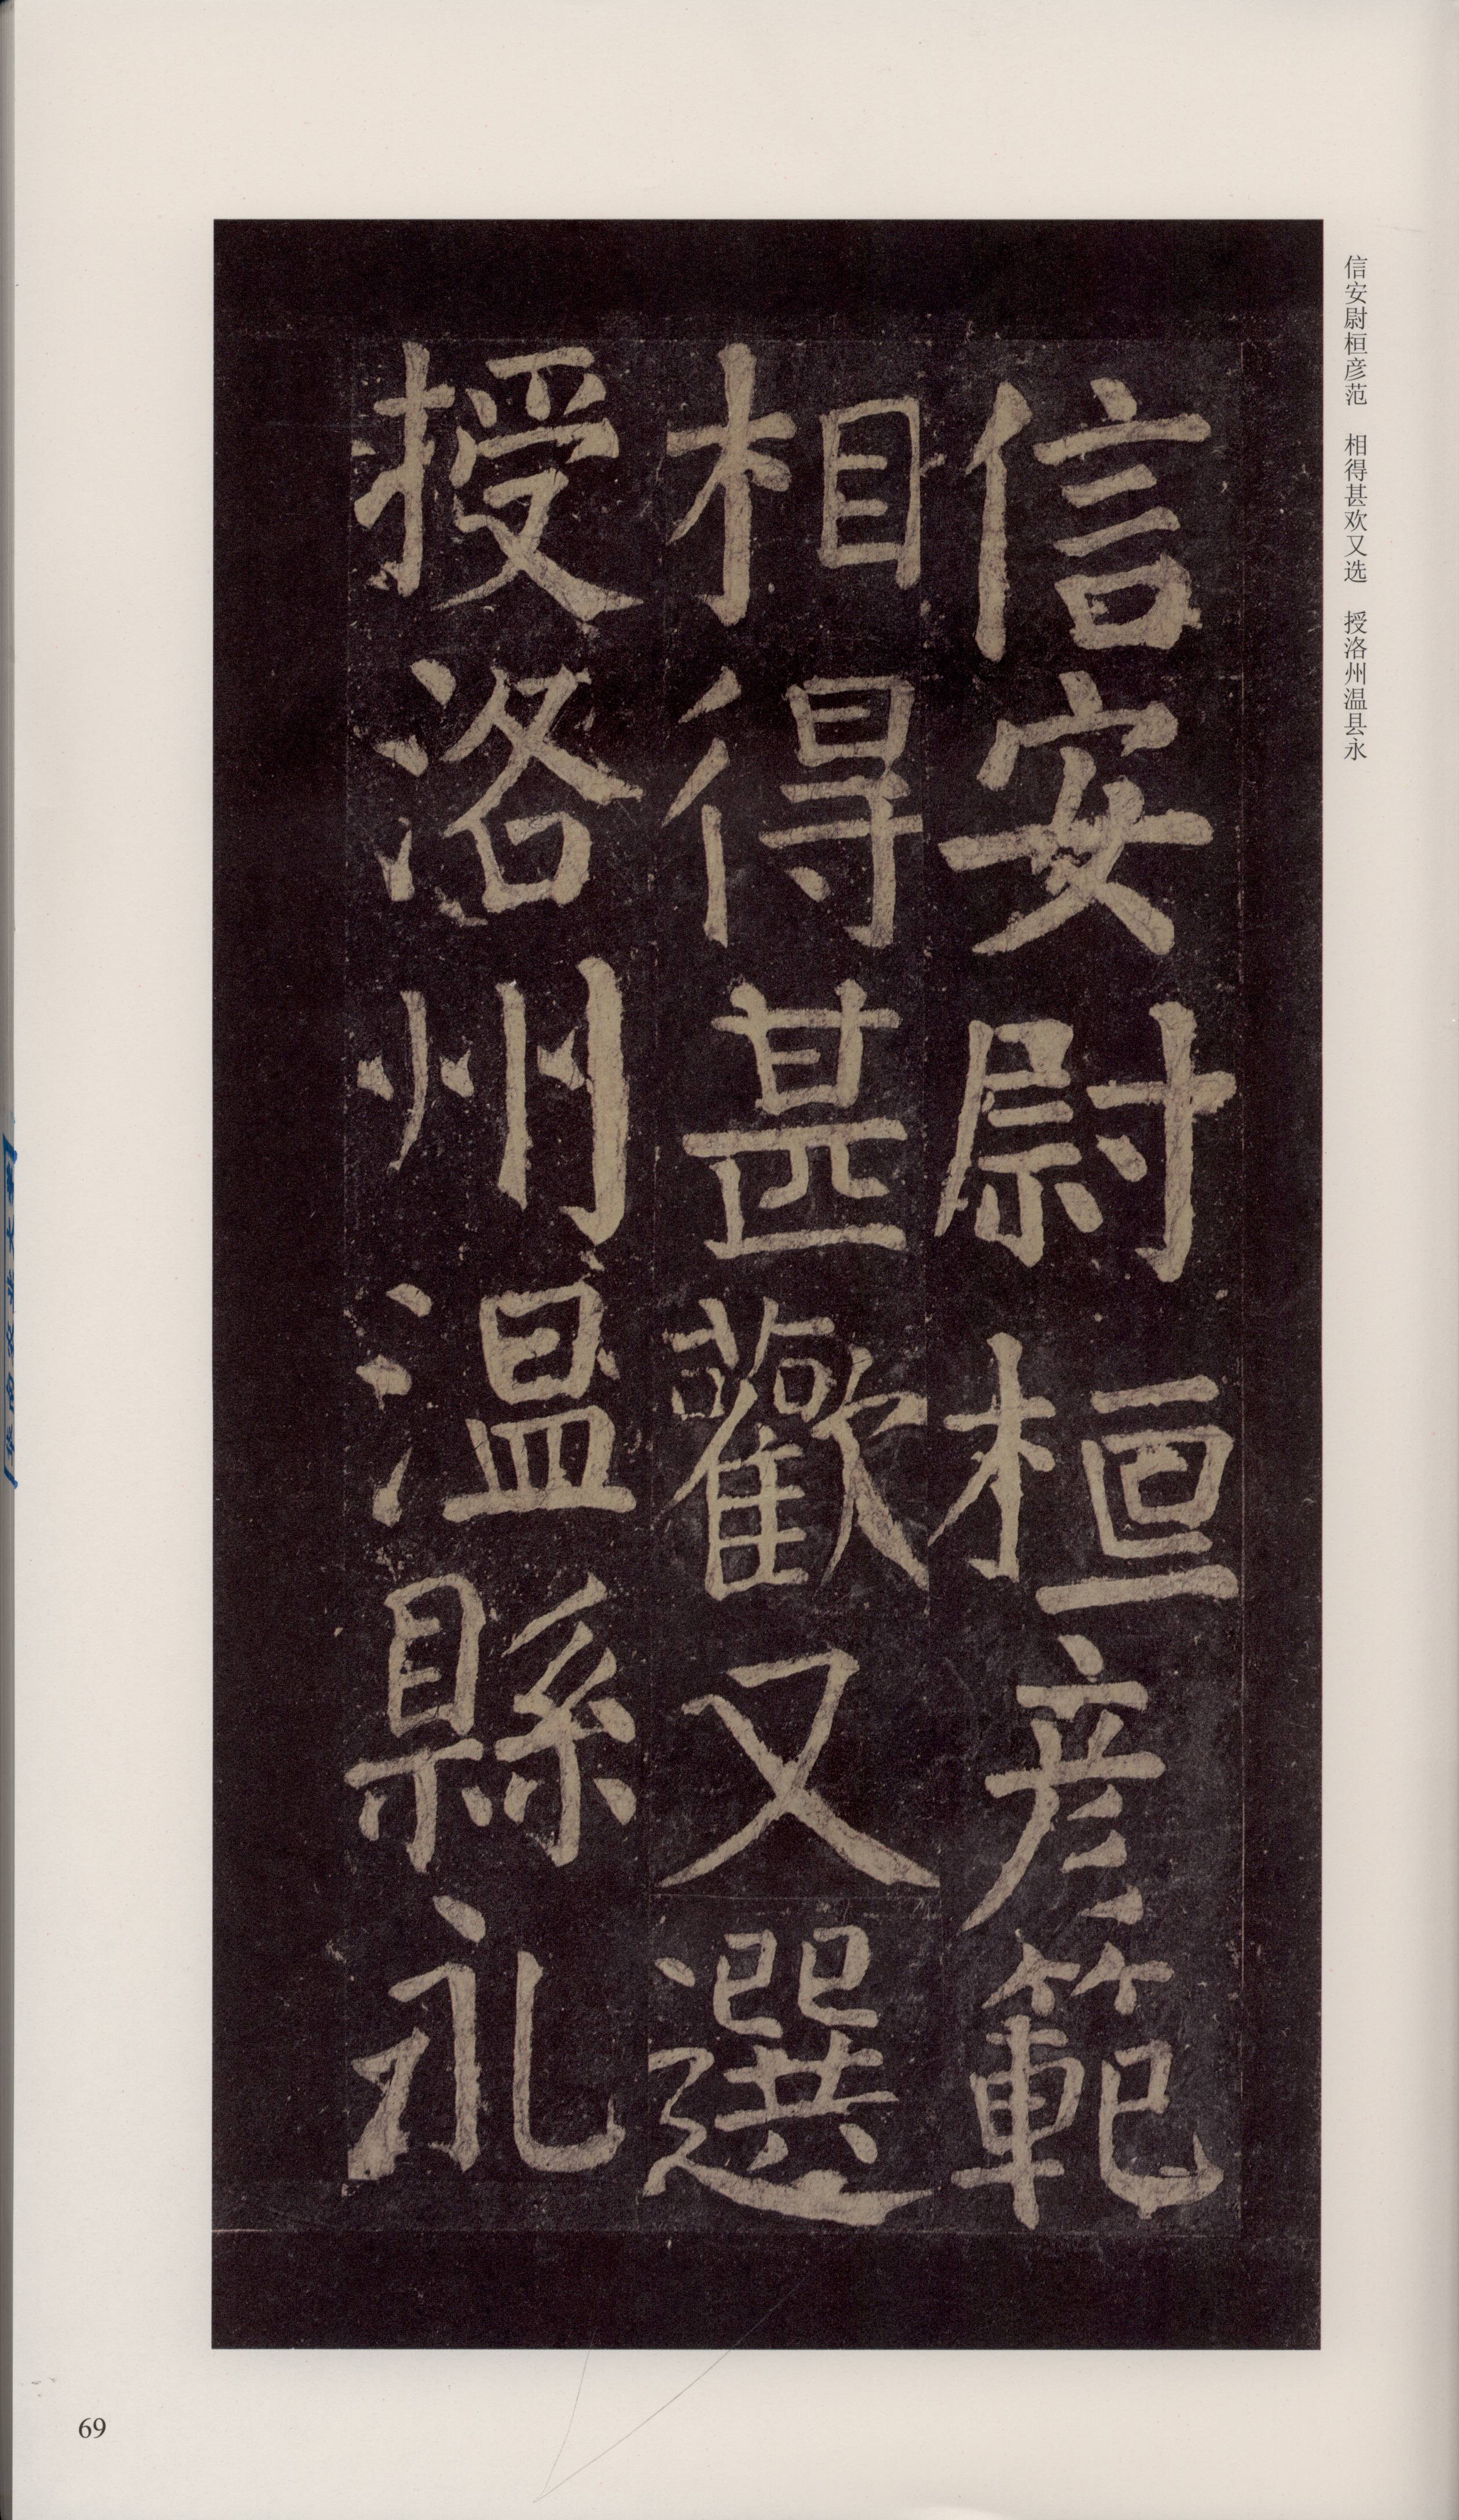 信安尉桓彦範
相得甚歡又選
授洛州温縣永
信安尉桓彦范 相得甚欢又选 授洛州温县永
69